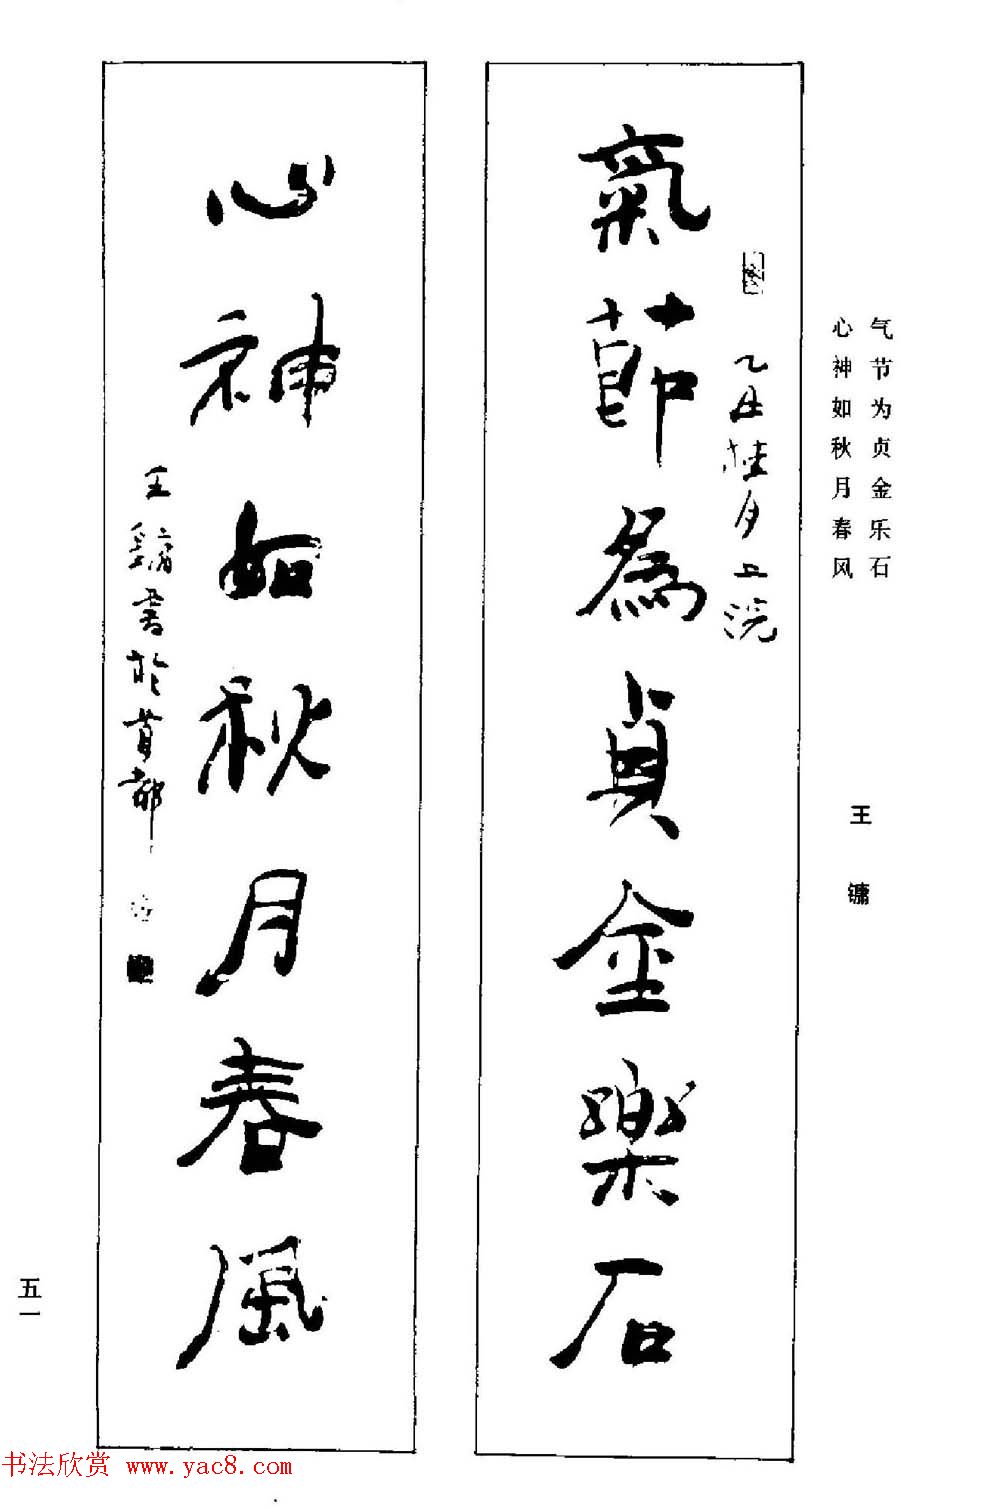 气节为贞金乐石
心神如秋月春风
王镛
乙丑桂月上浣
氣節為貞金樂石
心神如秋月春風
王鏞書於首都
五一
书法欣赏 www.yac8.com